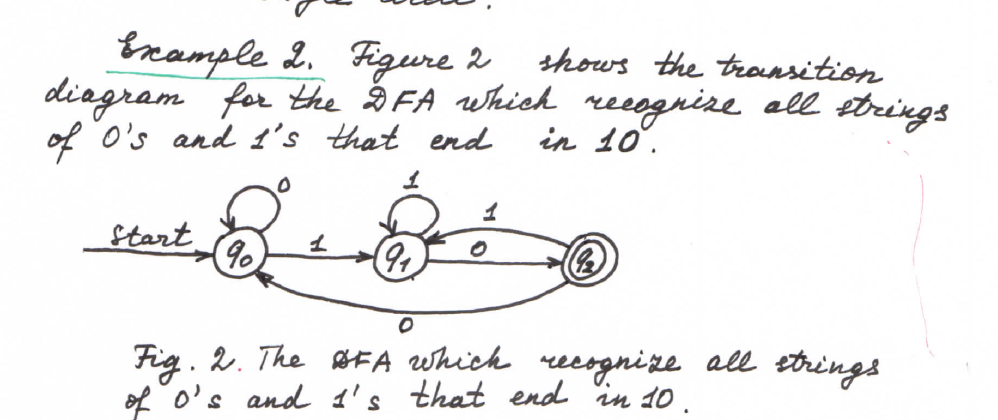 Example 2. Figure 2 shows the transition
diagram for the DFA which recognize all strings
of 0's and 1's that end in 10.
0
1
1
Start
q0
1
q1
0
q2
0
Fig. 2. The DFA which recognize all strings
of 0's and 1's that end in 10.